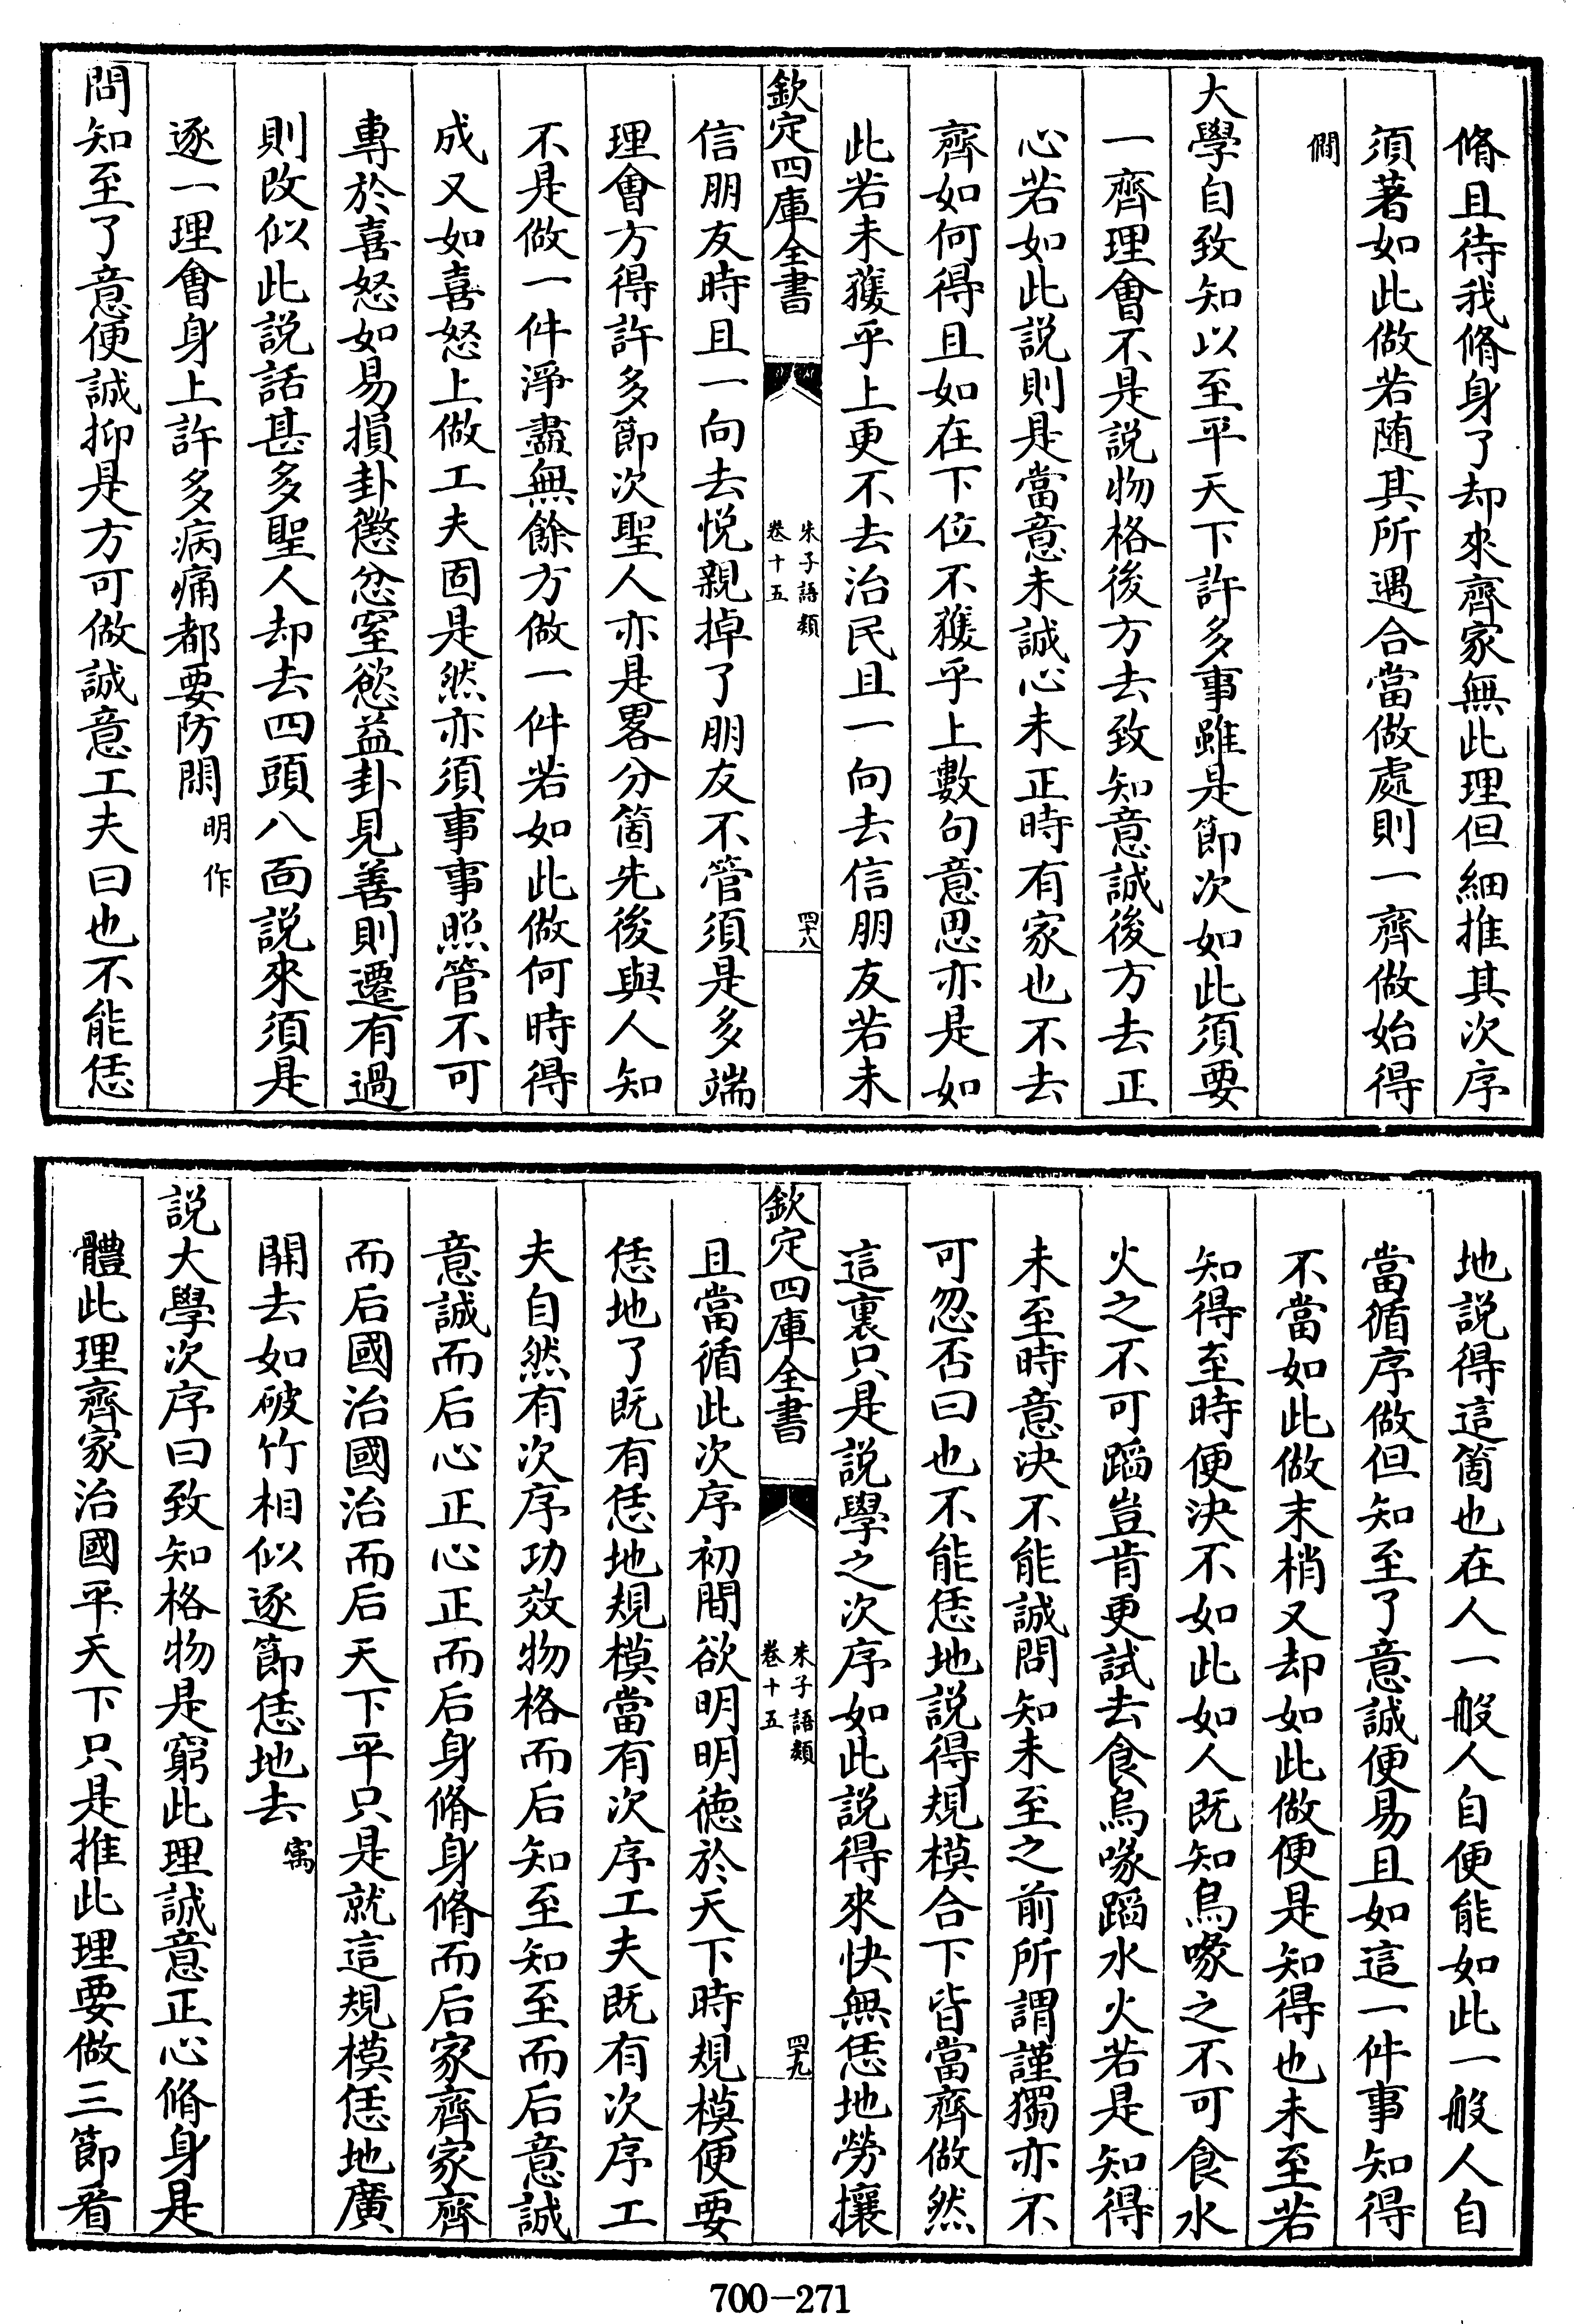 脩且待我脩身了却來齊家無此理但細推其次序
須著如此做若随其所遇合當做處則一齊做始得
僩
大學自致知以至平天下許多事雖是節次如此須要
一齊理㑹不是説物格後方去致知意誠後方去正
心若如此説則是當意未誠心未正時有家也不去
齊如何得且如在下位不獲乎上數句意思亦是如
此若未獲乎上更不去治民且一向去信朋友若未
欽定四庫全書
朱子語類
卷十五
四十八
信朋友時且一向去悦親掉了朋友不管須是多端
理㑹方得許多節次聖人亦是畧分箇先後與人知
不是做一件淨盡無餘方做一件若如此做何時得
成又如喜怒上做工夫固是然亦須事事照管不可
專於喜怒如易損卦懲忿窒慾益卦見善則遷有過
則改似此説話甚多聖人却去四頭八面説來須是
逐一理㑹身上許多病痛都要防閑明作
問知至了意便誠抑是方可做誠意工夫曰也不能恁
地説得這箇也在人一般人自便能如此一般人自
當循序做但知至了意誠便易且如這一件事知得
不當如此做末梢又却如此做便是知得也未至若
知得至時便決不如此如人既知烏喙之不可食水
火之不可蹈豈肯更試去食烏喙蹈水火若是知得
未至時意決不能誠問知未至之前所謂謹獨亦不
可忽否曰也不能恁地説得規模合下皆當齊做然
這裏只是説學之次序如此説得來快無恁地勞攘
欽定四庫全書
朱子語類
卷十五
四十九
且當循此次序初間欲明明德於天下時規模便要
恁地了既有恁地規模當有次序工夫既有次序工
夫自然有次序功效物格而后知至知至而后意誠
意誠而后心正心正而后身脩身脩而后家齊家齊
而后國治國治而后天下平只是就這規模恁地廣
開去如破竹相似逐節恁地去㝢
説大學次序曰致知格物是窮此理誠意正心脩身是
體此理齊家治國平天下只是推此理要做三節看
700-271